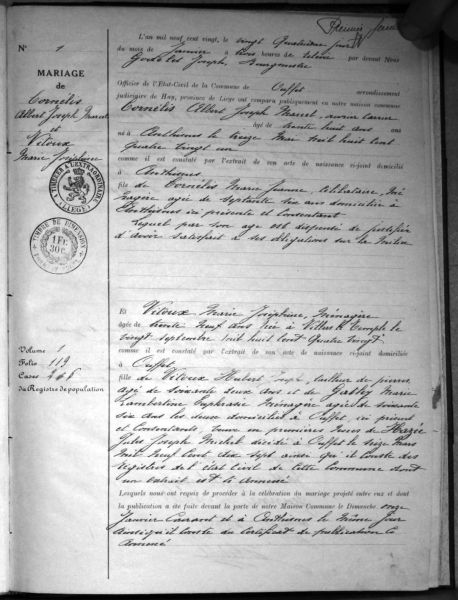 Premier feuillet
N° 1
MARIAGE
de
Cornélis
Albert Joseph Marcel
et
Viloux
Marie Joséphine
TIMBRE A L'EXTRAORDINAIRE
LIEGE
TIMBRE DE DIMENSION
1 FR.
30 C.
L'an mil neuf cent vingt, le vingt quatrième jour
du mois de Janvier à trois heures de relevée par devant Nous
Joseph, Bourgmestre
Officier de l'Etat-Civil de la Commune de Ouffet arrondissement
judiciaire de Huy, province de Liége ont comparu publiquement en notre maison communale
Cornélis Albert Joseph Marcel, ouvrier
âgé de trente huit ans
né à Anthisnes le treize Mai mil huit cent
quatre vingt un
comme il est constaté par l'extrait de son acte de naissance ci-joint domicilié
à Anthisnes
fils de Cornélis Marie Jeanne, célibataire, mé
nagère agée de septante six ans domiciliée à
Anthisnes ici présente et consentant
Lequel par son age est dispensé de justifier
d'avoir satisfait à ses obligations sur la milice
Et Viloux Marie Joséphine, Ménagère
âgée de trente neuf ans née à Villers le Temple le
vingt septembre mil huit cent quatre vingt
comme il est constaté par l'extrait de son acte de naissance ci-joint domiciliée
à Ouffet
fille de Viloux Hubert Joseph, tailleur de pierres
agé de soixante deux ans et de Marie
Lambertine Euphrasie Ménagère agée de soixante
six ans les deux domiciliés à Ouffet, ici présents
et consentants, veuve en premières noces de Hazée
Jules Joseph Michel décédé à Ouffet le seize Mars
mil neuf cent dix sept ainsi qu'il conste des
registres de l'état civil de cette commune dont
un extrait est ci annexé
Volume 1
Folio 119
Cases
du Registre de population
Lesquels nous ont requis de procéder à la célébration du mariage projeté entre eux et dont
la publication a été faite devant la porte de notre Maison Commune le Dimanche onze
Janvier courant et à Anthisnes le même jour
ainsi qu'il conste du certificat de publication ci
annexé